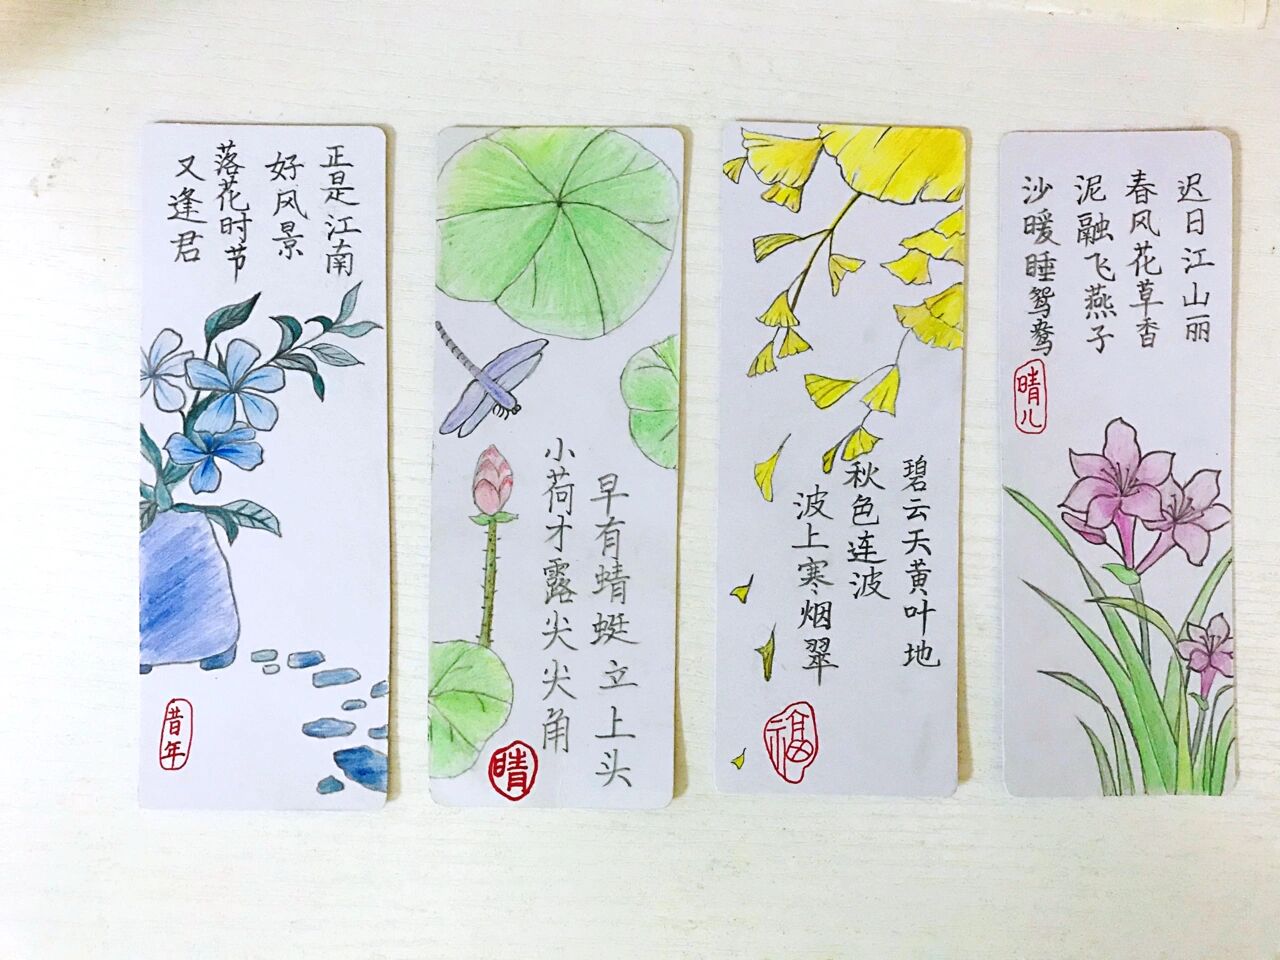 正是江南
好风景
落花时节
又逢君
昔年
早有蜻蜓立上头
小荷才露尖尖角
晴
碧云天黄叶地
秋色连波
波上寒烟翠
福
迟日江山丽
春风花草香
泥融飞燕子
沙暖睡鸳鸯
晴儿